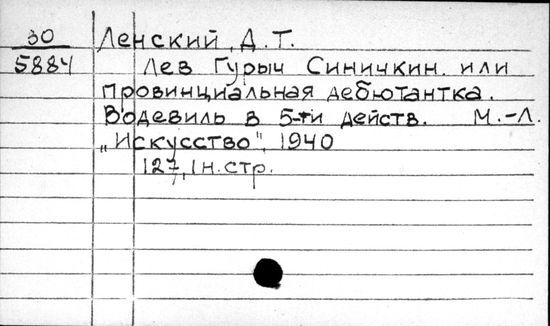 30 Ленский, Д. Т.
5884 Лев Гурыч Синичкин. или
провинциальная дебютантка.
Водевиль в 5-ти действ. М.-Л.
„Искусство", 1940
127, 1 н. стр.